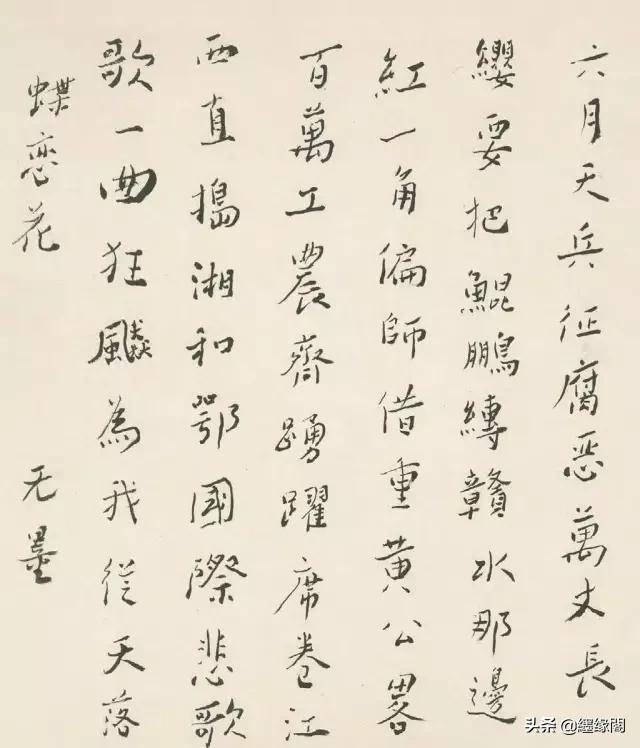 六月天兵征腐恶萬丈長
纓要把鯤鵬縛贛水那邊
紅一角偏師借重黄公畧
百萬工農齊踴躍席卷江
西直搗湘和鄂國際悲歌
歌一曲狂飇為我從天落
蝶恋花
无墨
头条@纆缘閣